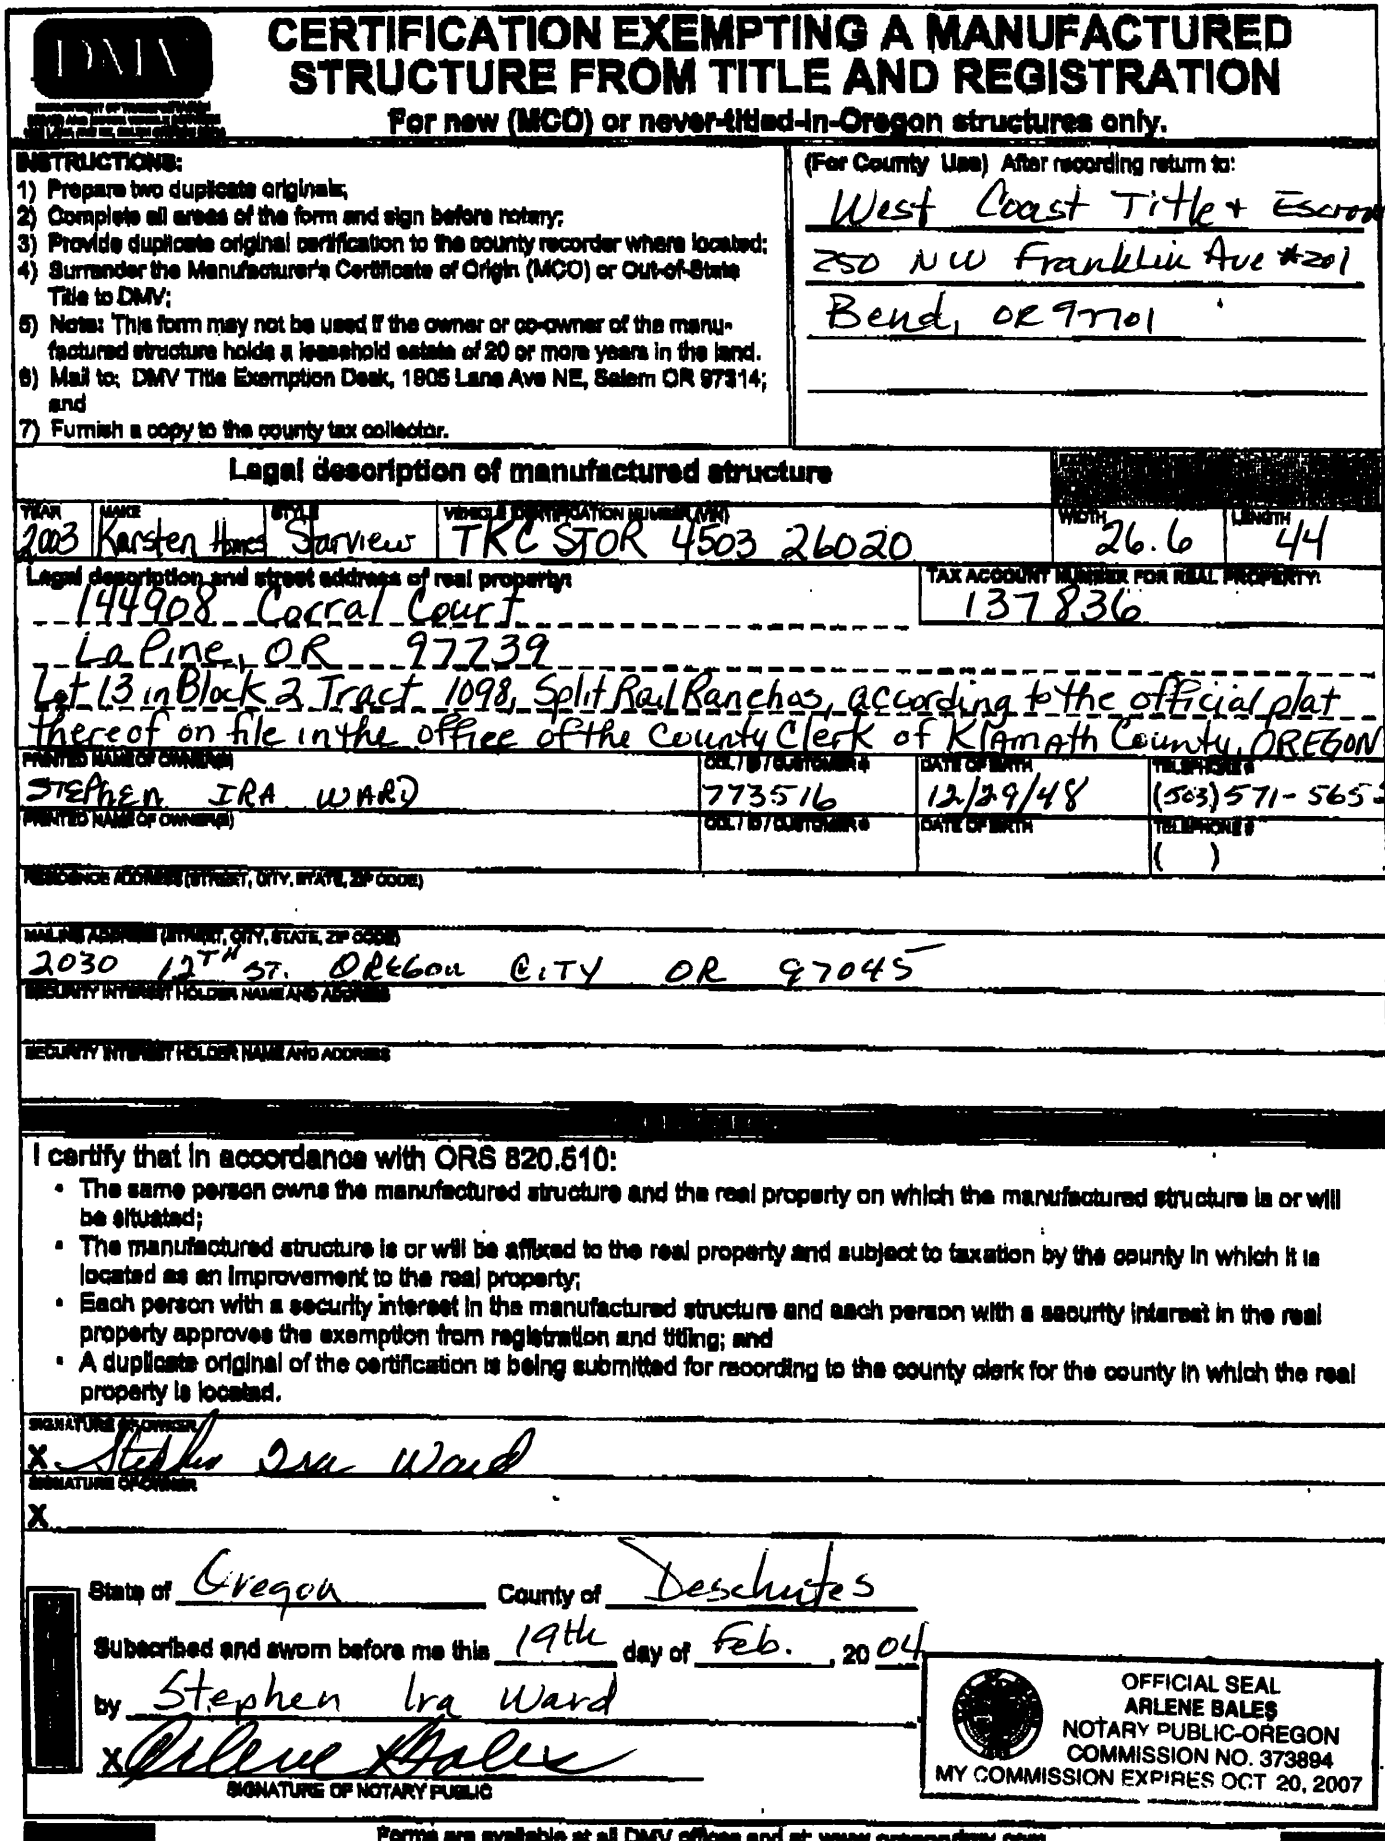 DMV
CERTIFICATION EXEMPTING A MANUFACTURED
STRUCTURE FROM TITLE AND REGISTRATION
For new (MCO) or never-titled-in-Oregon structures only.
INSTRUCTIONS:
1) Prepare two duplicate originals;
2) Complete all areas of the form and sign before notary;
3) Provide duplicate original certification to the county recorder where located;
4) Surrender the Manufacturer's Certificate of Origin (MCO) or Out-of-State
Title to DMV;
5) Note: This form may not be used if the owner or co-owner of the manu-
factured structure holds a leasehold estate of 20 or more years in the land.
6) Mail to: DMV Title Exemption Desk, 1905 Lana Ave NE, Salem OR 97314;
and
7) Furnish a copy to the county tax collector.
(For County Use) After recording return to:
West Coast Title + Escrow
250 NW Franklin Ave #201
Bend, OR 97701
Legal description of manufactured structure
YEAR MAKE STYLE VEHICLE IDENTIFICATION NUMBER (VIN) WIDTH LENGTH
2003 Karsten Homes Starview TKC STOR 4503 26020 26.6 44
Legal description and street address of real property: TAX ACCOUNT NUMBER FOR REAL PROPERTY:
144908 Corral Court 137836
La Pine, OR 97739
Lot 13 in Block 2 Tract 1098, Split Rail Ranchos, according to the official plat
thereof on file in the office of the County Clerk of Klamath County, OREGON
PRINTED NAME OF OWNER(S) ODL / ID / CUSTOMER # DATE OF BIRTH TELEPHONE #
STEPHEN IRA WARD 773516 12/29/48 (503) 571-565
PRINTED NAME OF OWNER(S) ODL / ID / CUSTOMER # DATE OF BIRTH TELEPHONE #
( )
RESIDENCE ADDRESS (STREET, CITY, STATE, ZIP CODE)
MAILING ADDRESS (STREET, CITY, STATE, ZIP CODE)
2030 12TH ST. OREGON CITY OR 97045
SECURITY INTEREST HOLDER NAME AND ADDRESS
SECURITY INTEREST HOLDER NAME AND ADDRESS
I certify that in accordance with ORS 820.510:
• The same person owns the manufactured structure and the real property on which the manufactured structure is or will
be situated;
• The manufactured structure is or will be affixed to the real property and subject to taxation by the county in which it is
located as an improvement to the real property;
• Each person with a security interest in the manufactured structure and each person with a security interest in the real
property approves the exemption from registration and titling; and
• A duplicate original of the certification is being submitted for recording to the county clerk for the county in which the real
property is located.
SIGNATURE OF OWNER
X Stephen Ira Ward
SIGNATURE OF OWNER
X
State of Oregon County of Deschutes
Subscribed and sworn before me this 19th day of Feb. , 20 04
by Stephen Ira Ward
X Arlene Bales
SIGNATURE OF NOTARY PUBLIC
OFFICIAL SEAL
ARLENE BALES
NOTARY PUBLIC-OREGON
COMMISSION NO. 373894
MY COMMISSION EXPIRES OCT 20, 2007
Forms are available at all DMV offices and at: